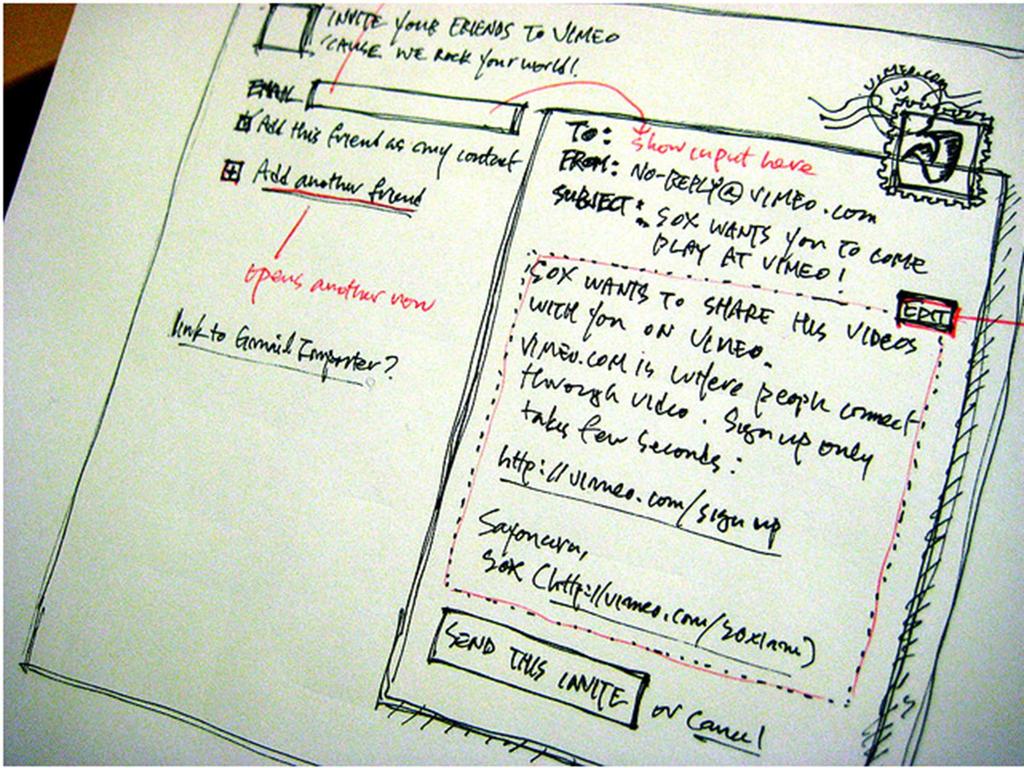 INVITE your FRIENDS TO VIMEO
'CAUSE WE Rock your world!
EMAIL
Add this friend as my contact
Add another friend
opens another row
link to Gmail Importer?
VIMEO.COM
TO:
show input here
FROM: NO-REPLY@VIMEO.COM
SUBJECT: SOX WANTS YOU TO COME
PLAY AT VIMEO!
EDIT
SOX WANTS TO SHARE HIS VIDEOS
WITH YOU ON VIMEO.
VIMEO.COM IS WHERE people connect
through video. Sign up only
takes few seconds:
http://vimeo.com/sign up
Sayonara,
SOX (http://vimeo.com/soxiam)
SEND THIS INVITE
or Cancel